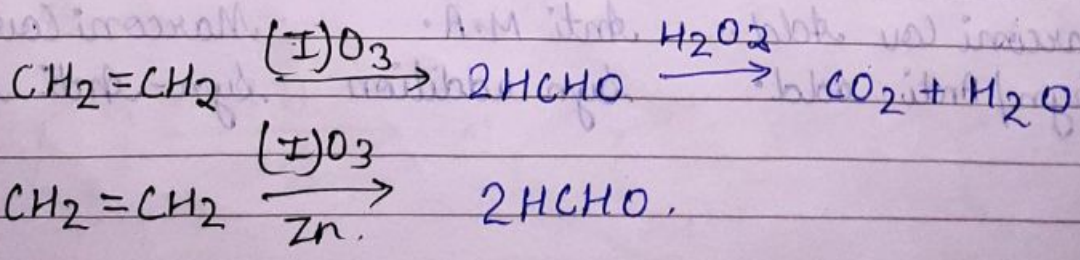 CH₂=CH₂ (I)O₃ → 2HCHO H₂O₂ → CO₂ + H₂O
CH₂=CH₂ (I)O₃ → Zn. 2HCHO.